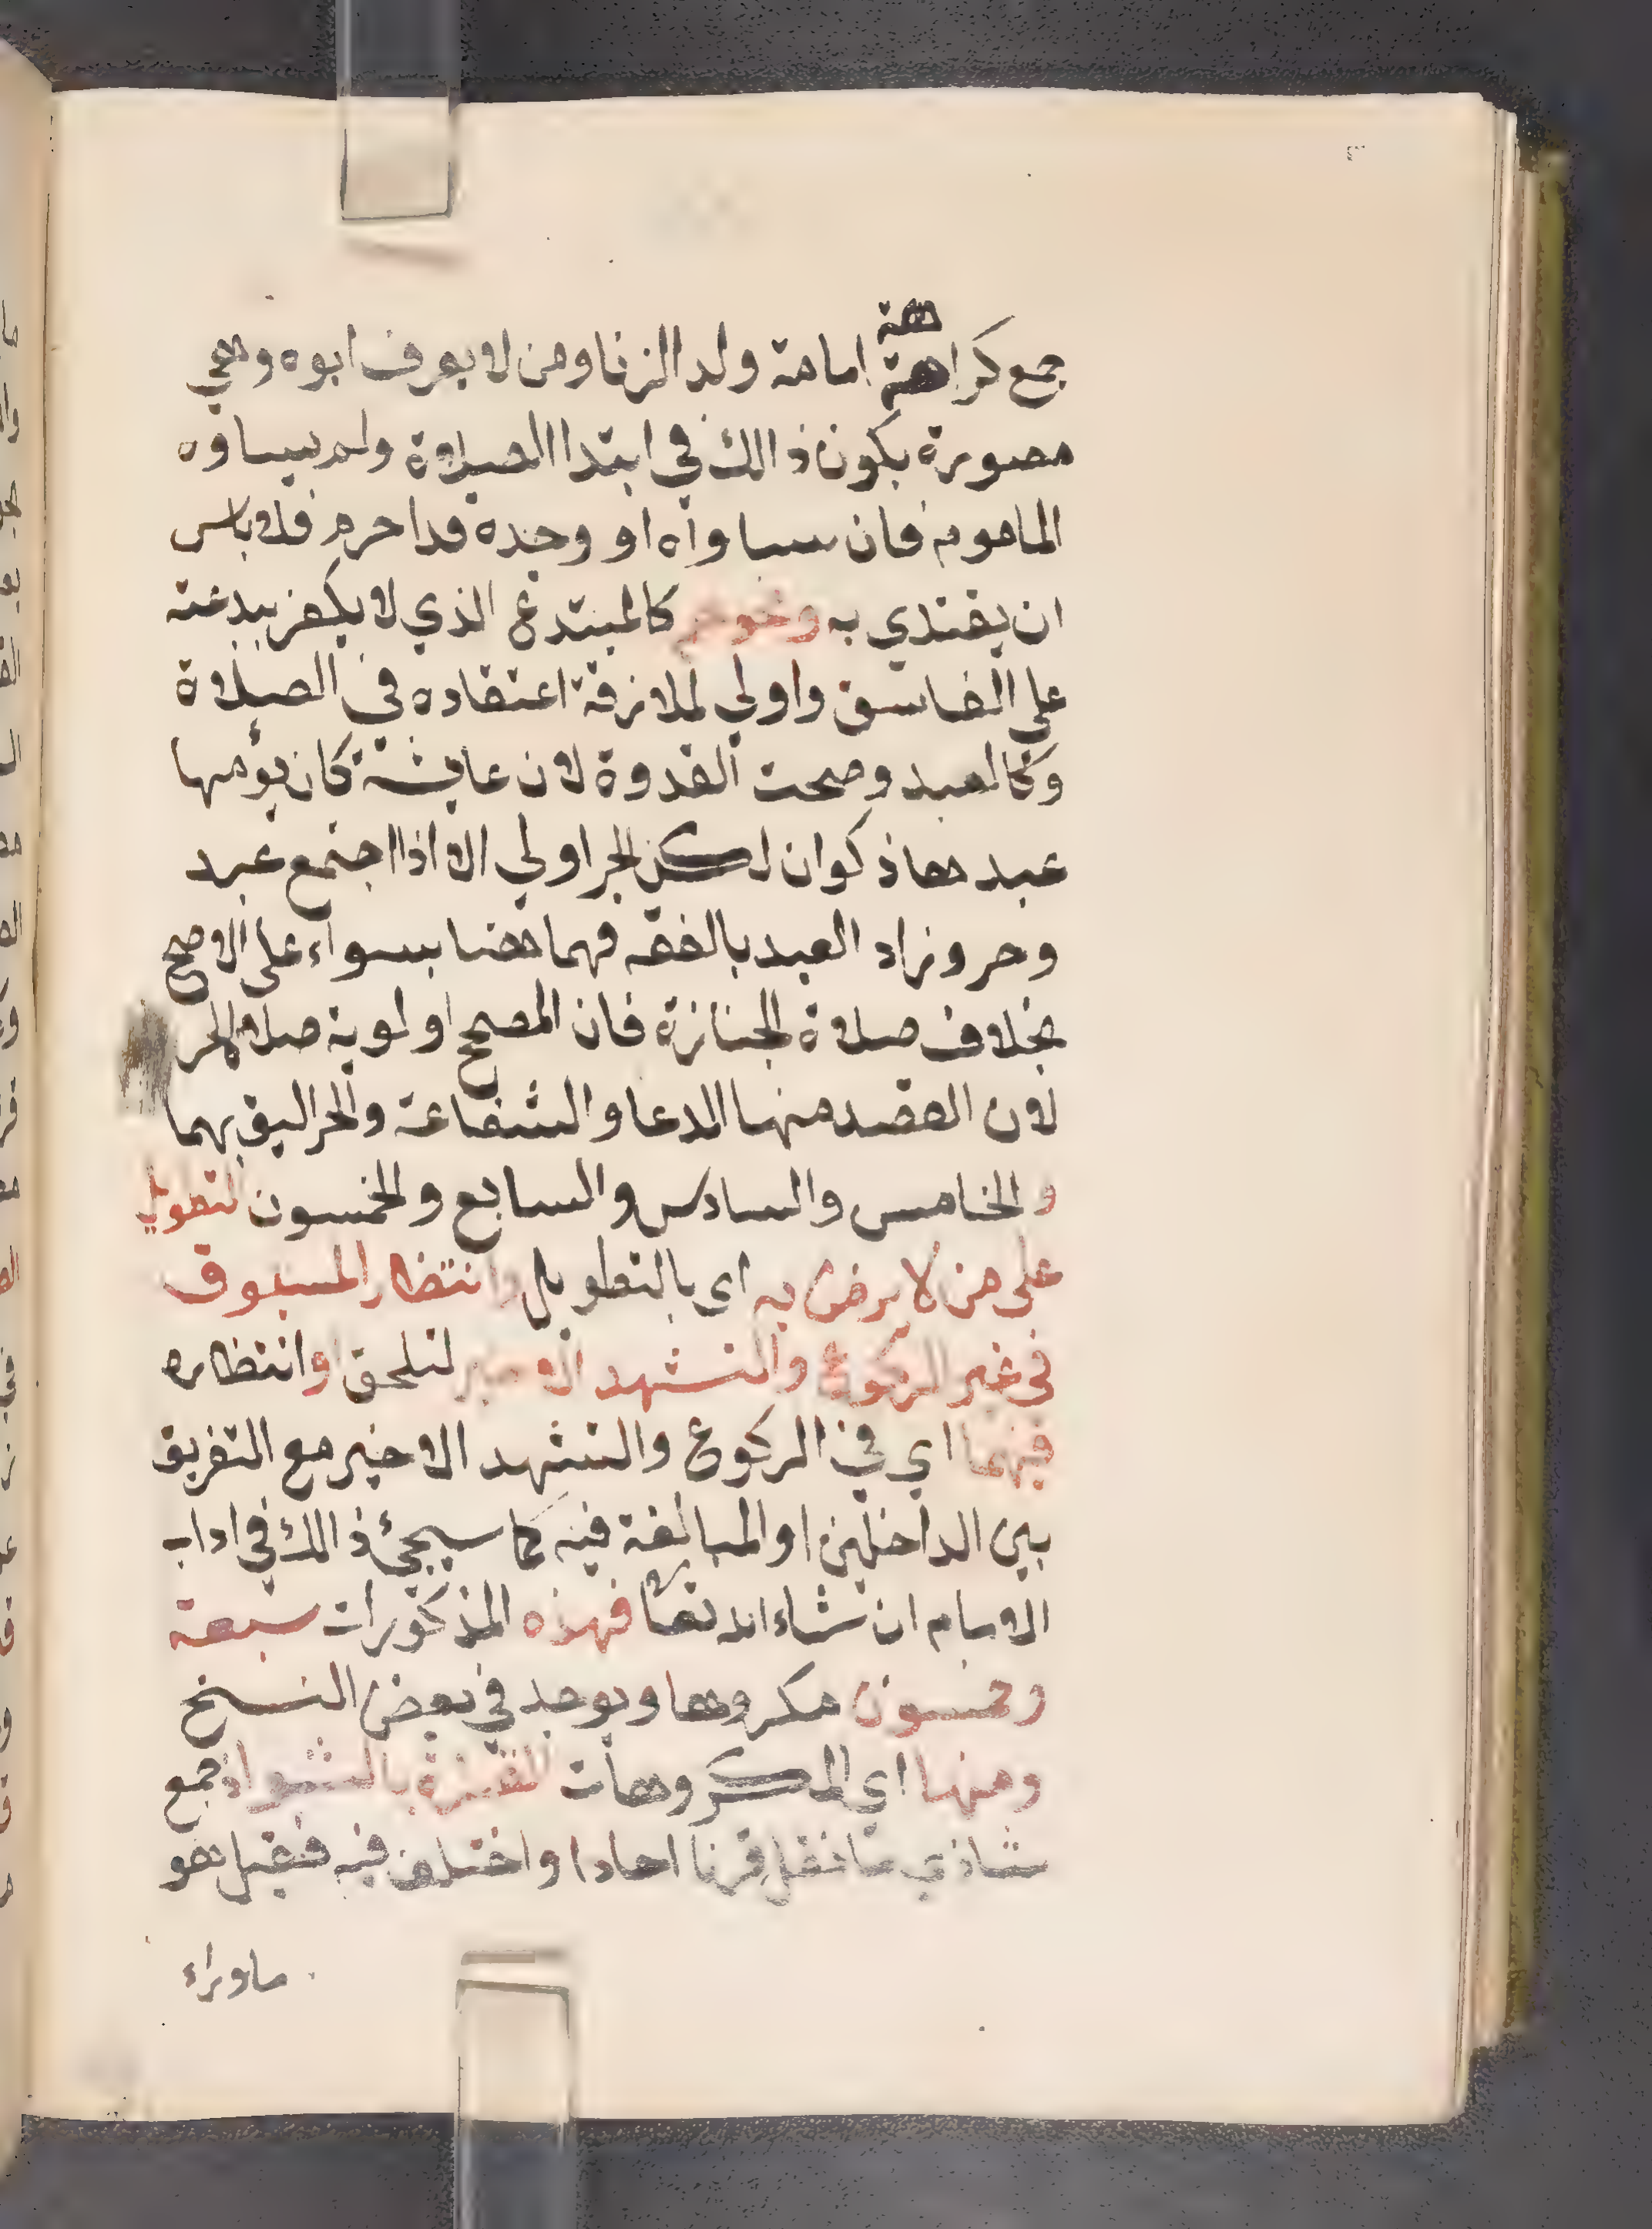 هة
جمع كراهة امامة ولد الزنا ومن لا يعرف ابوه وهي
مصورة بكون ذالك في ابتدا الصلاة ولم يساوه
الماموم فان ساواه او وجده قد احرم فلا باس
ان يقتدي به ونحوهم كالمبتدع الذي لا يكفر ببدعته
على الفاسق واولي لملازقة اعتقاده في الصلاة
وكالعبد وصحت القدوة لان عايشة كان يؤمها
عبدها ذكوان لكن الحر اولي الا اذا اجتمع عبد
وحر وزاد العبد بالفقه فهما هنا بسواء على الاصح
بخلاف صلاة الجنازة فان المصحح اولوية صلاة الحر
لان القصد منها الدعا والشفاعة والحر اليق بهما
والخامس والسادس والسابع والخمسون لتطويل
على من لا يرضى به اى بالتطويل وانتظار المسبوق
في غير الركوع والتشهد الاخير لتلحق وانتظاره
فيهما اي في الركوع والتشهد الاخير مع التفريق
بين الداخلين او المبالغة فيه كما سيجئ ذالك في اداب
الامام ان شاء الله تعا فهذه المذكورات سبعة
وخمسون مكروها ويوجد في بعض النسخ
ومنها اي المكروهات القراة بالشواذ جمع
شاذ ي ما نقل قرنا احادا واختلف فيه فقيل هو
ماوراء